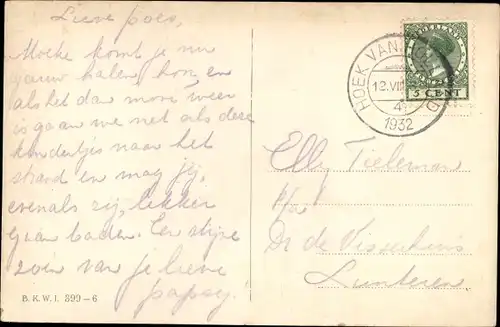 Lieve poes,
Moeke komt je nu
gauw halen, hoor, en
als het dan mooi weer
is gaan we net als deze
kindertjes naar het
strand en mag jij,
evenals zij, lekker
gaan baden. Een
zoen van je lieve
papsy!
B. K. W. I. 399-6
HOEK VAN HOLLAND
12.VII
4
1932
NEDERLAND
5 CENT
Elly Tieleman
p/a
Dr de Visserhuis
Lunteren